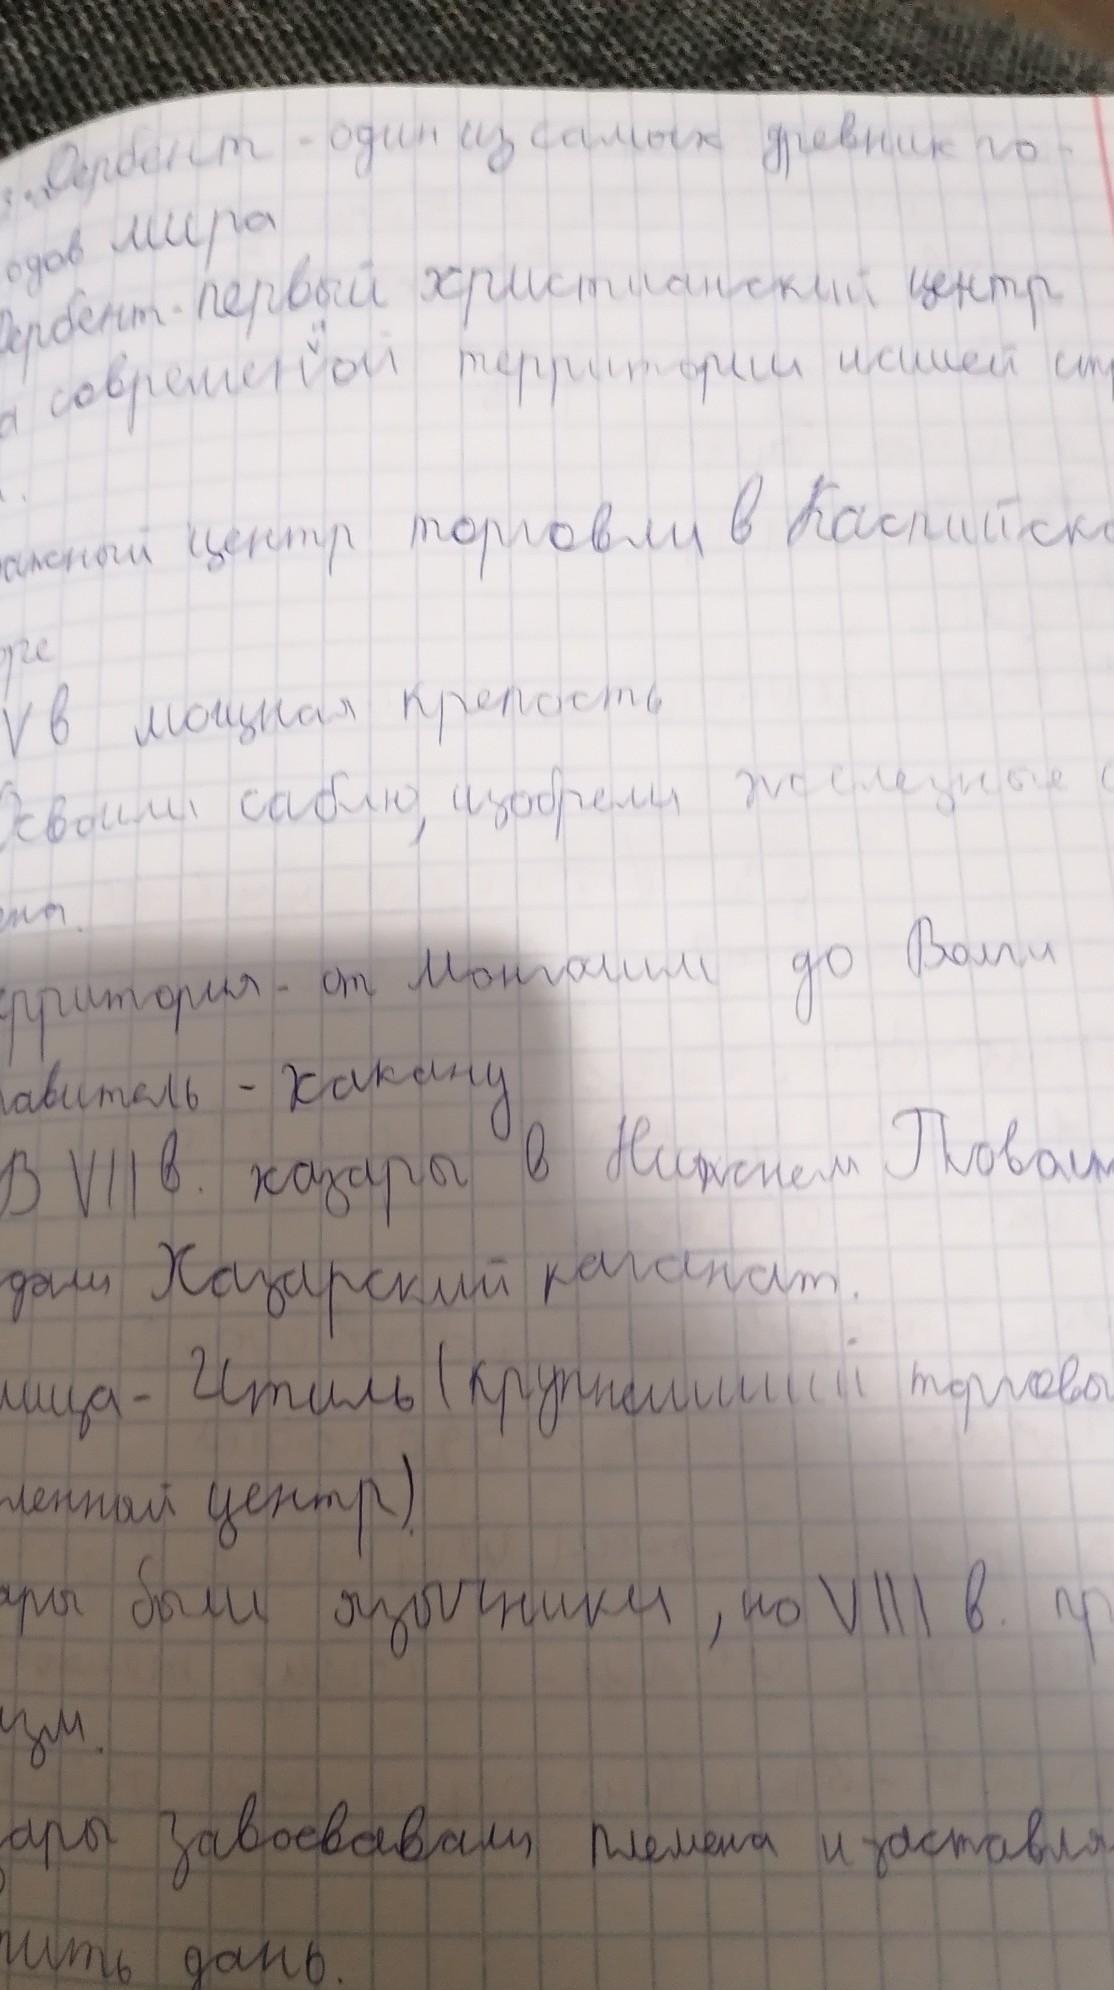 Дербент - один из самых древних го-
одов мира
Дербент - первый христианский центр
а современой территории нашей стр
ажный центр торговли в Каспийско
оре
V в мощная крепость
Освоили саблю, изобрели железные с
ена.
ерритория - от Монголии до Волги
равитель - хакану
В VII в. хазары в Нижнем Поволж
дали Хазарский каганат.
лица - Итиль (крупнейший торговы
ленный центр).
ары были язычники, но VIII в. пр
изм.
ары завоевавали племена и заставля
тить дань.